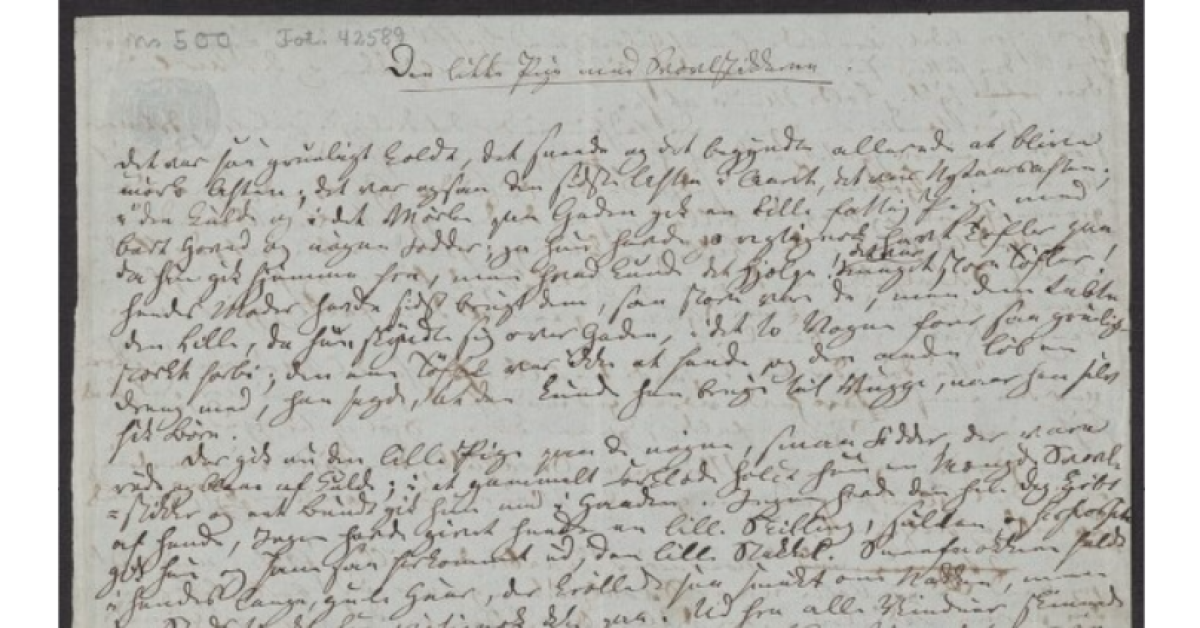 No 500 Fot. 42589
Den lille Pige med Svovlstikkerne.
Det var saa grueligt koldt, det sneede og det begyndte allerede at blive
mørk Aften; det var ogsaa den sidste Aften i Aaret, det var Nytaarsaften;
i den Kulde og i det Mørke gik paa Gaden en lille fattig Pige med
bart Hoved og nøgne Fødder; ja hun havde jo rigtignok havt Tøfler paa
da hun gik hjemme fra, men hvad kunde det hjelpe! det var meget store Tøfler!
hendes Moder havde sidst brugt dem, saa store vare de, men dem tabte
den lille, da hun skyndte sig over Gaden, idet to Vogne foer saa grueligt
stærkt forbi; den ene Tøffel var ikke at finde og den anden løb en
Dreng med, han sagde, at den kunde han bruge til Vugge, naar han selv
fik Børn.
Der gik nu den lille Pige paa de nøgne, smaa Fødder, der vare
røde og blaa af Kulde; i et gammelt Forklæde holdt hun en Mængde Svovl-
=stikker og eet Bundt gik hun med i Haanden. Ingen havde den hele Dag kjøbt
af hende, Ingen havde givet hende en lille Skilling; sulten og forfrossen
gik hun og saae saa forkommet ud, den lille Stakkel. Sneefnokkene faldt
i hendes lange, gule Haar, der krøllede saa smukt om Nakken, men
paa. Ud fra alle Vinduer skinnede